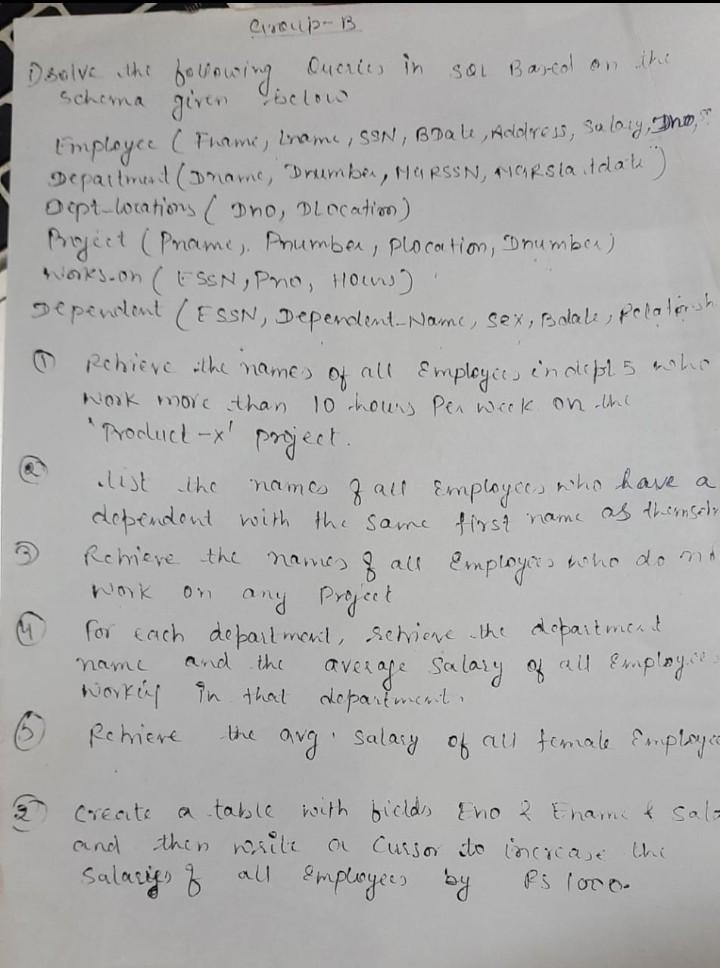 Group-B
1) Solve the following Queries in SQL Based on the
Schema given below
Employee ( Fname, Lname, SSN, BDate, Address, Salary, Dno,
Department ( Dname, Dnumber, MGRSSN,
Dept-locations ( Dno, DLocation)
Project ( Pname, Pnumber, Plocation, Dnumber)
Works-on ( ESSN, Pno, Hours)
Dependent ( ESSN, Dependent-Name, Sex, Bdate, Relationsh
① Retrieve the names of all Employees in dept 5 who
Work more than 10 hours Per week on the
'Product-x' project.
② List the names of all Employees who have a
dependent with the same first name as themselv
③ Retrieve the names of all Employees who do not
Work on any Project
④ For each department, retrieve the department
name and the average Salary of all Employee
Working in that department.
⑤ Retrieve the avg. Salary of all female Employee
② Create a table with fields Eno & Ename & Sala
and then write a Cursor to increase the
Salaries of all Employees by RS 1000.